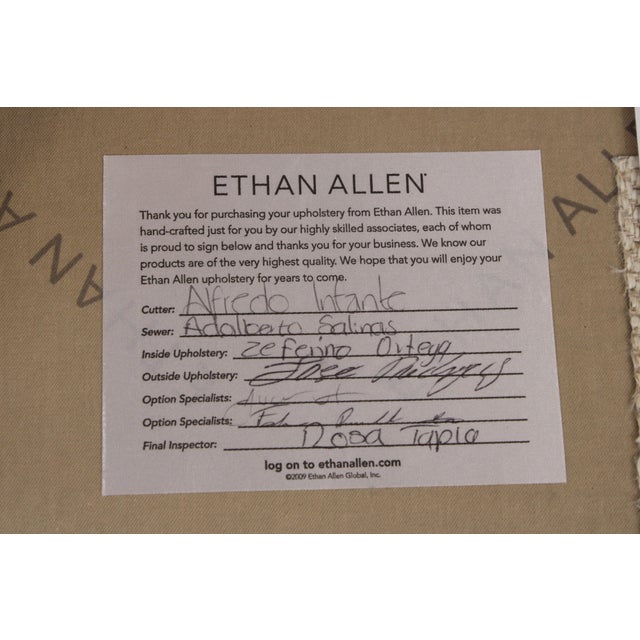 ETHAN ALLEN®
Thank you for purchasing your upholstery from Ethan Allen. This item was
hand-crafted just for you by our highly skilled associates, each of whom
is proud to sign below and thanks you for your business. We know our
products are of the very highest quality. We hope that you will enjoy your
Ethan Allen upholstery for years to come.
Cutter: Alfredo Infante
Sewer: Adalberto Salinas
Inside Upholstery: Zeferino Ortega
Outside Upholstery: Jose
Option Specialists:
Option Specialists:
Final Inspector: Rosa Tapia
log on to ethanallen.com
©2009 Ethan Allen Global, Inc.